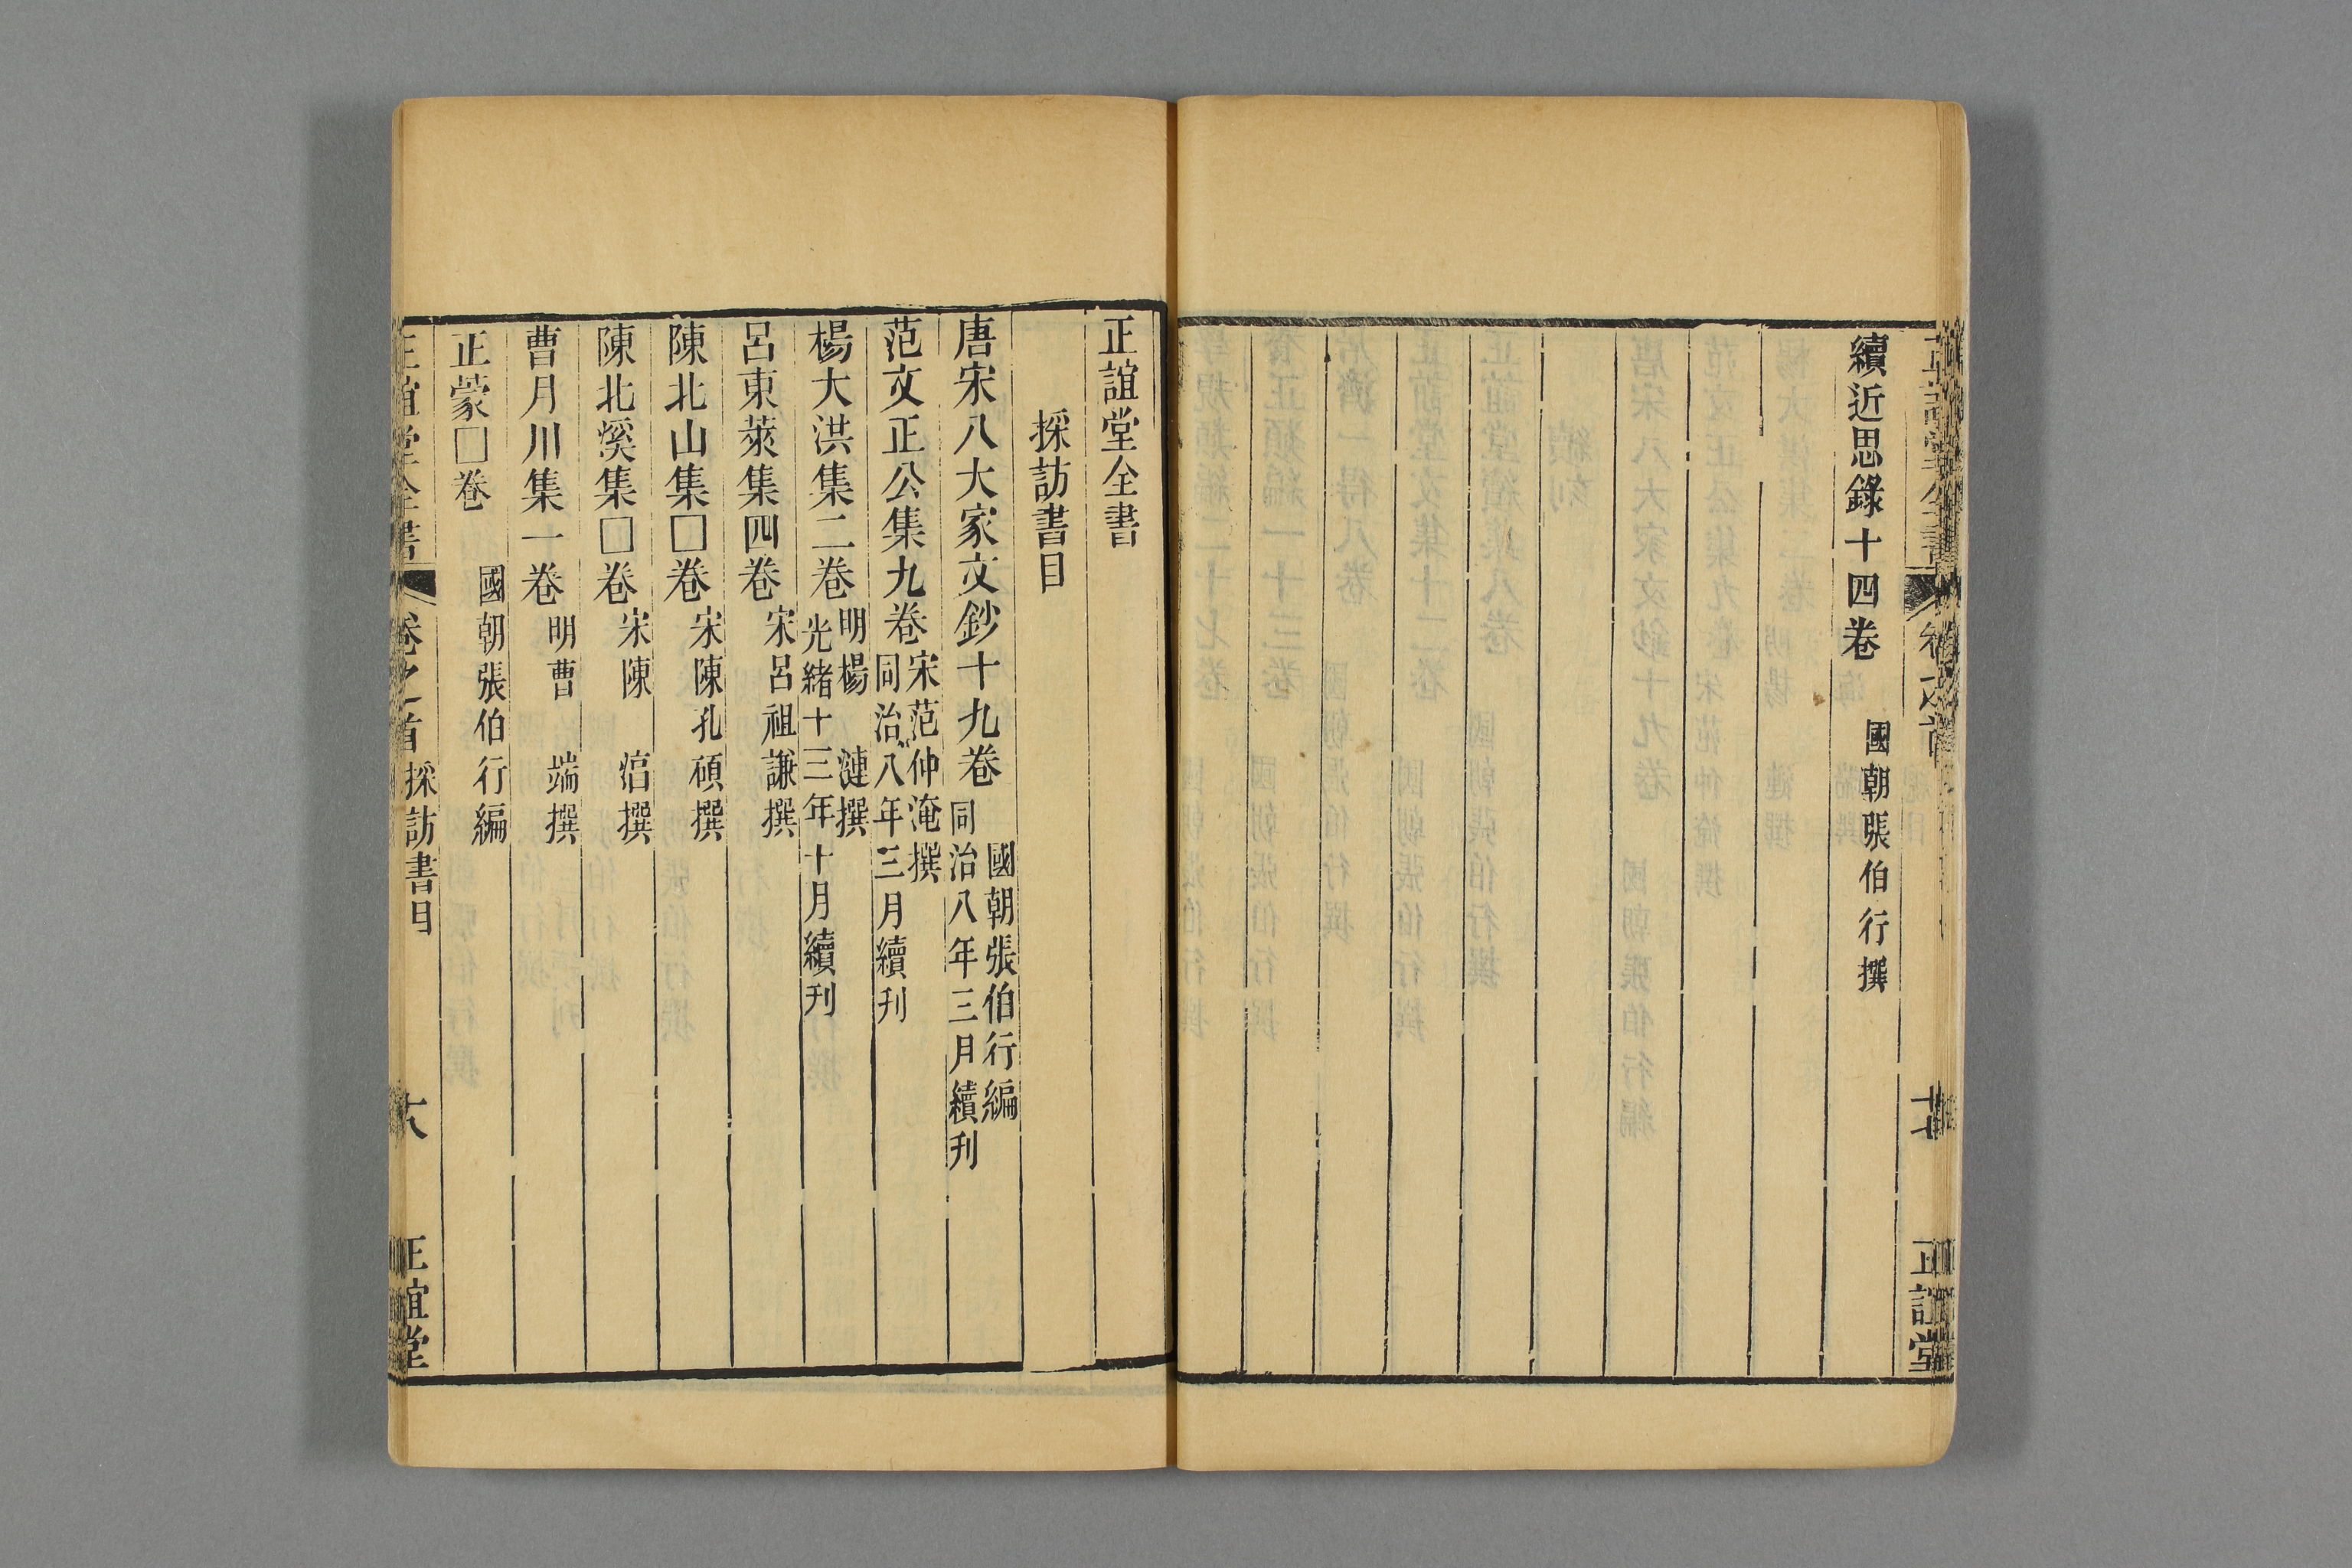 續近思錄十四卷 國朝張伯行撰
正誼堂全書
採訪書目
唐宋八大家文鈔十九卷 國朝張伯行編 同治八年三月續刊
范文正公集九卷 宋范仲淹撰 同治八年三月續刊
楊大洪集二卷 明楊漣撰 光緒十三年十月續刊
呂東萊集四卷 宋呂祖謙撰
陳北山集□卷 宋陳孔碩撰
陳北溪集□卷 宋陳淳撰
曹月川集一卷 明曹端撰
正蒙□卷 國朝張伯行編
正誼堂全書 卷之首 採訪書目 六 正誼堂